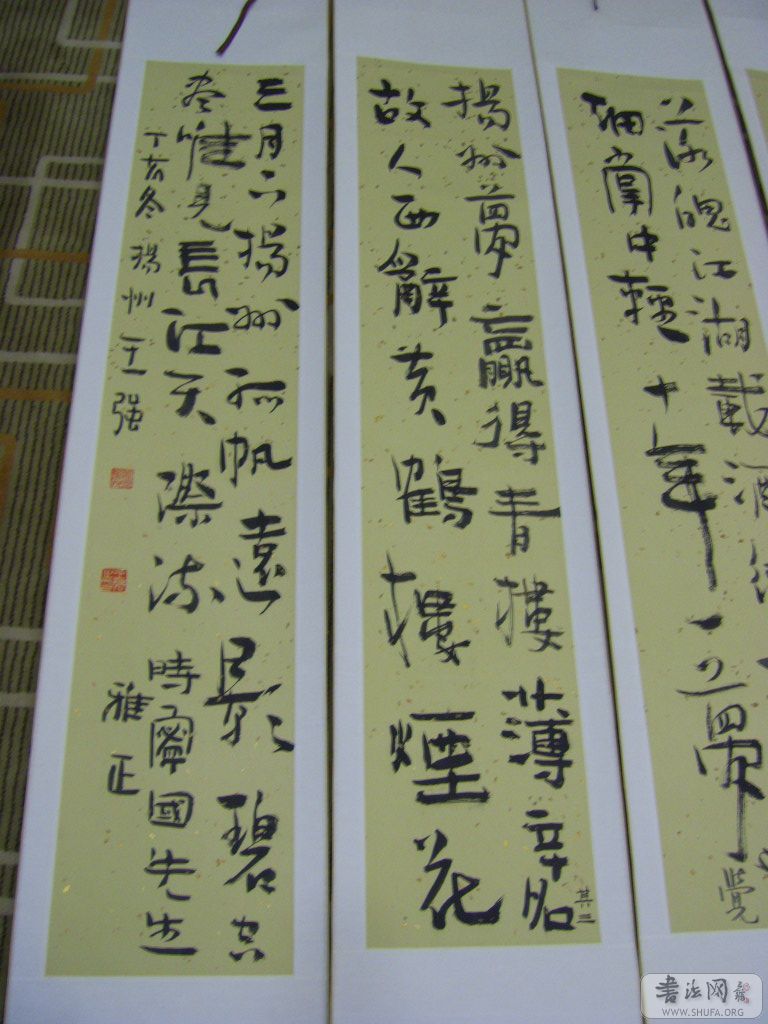 落魄江湖載酒
細掌中輕十年一夢覺
揚州夢贏得青樓薄幸名
其三
故人西辭黄鶴樓煙花
三月下揚州孤帆遠影碧空
盡惟見長江天際流 時寧國先生
雅正
丁亥冬 揚州王強
書法网
WWW.SHUFA.ORG